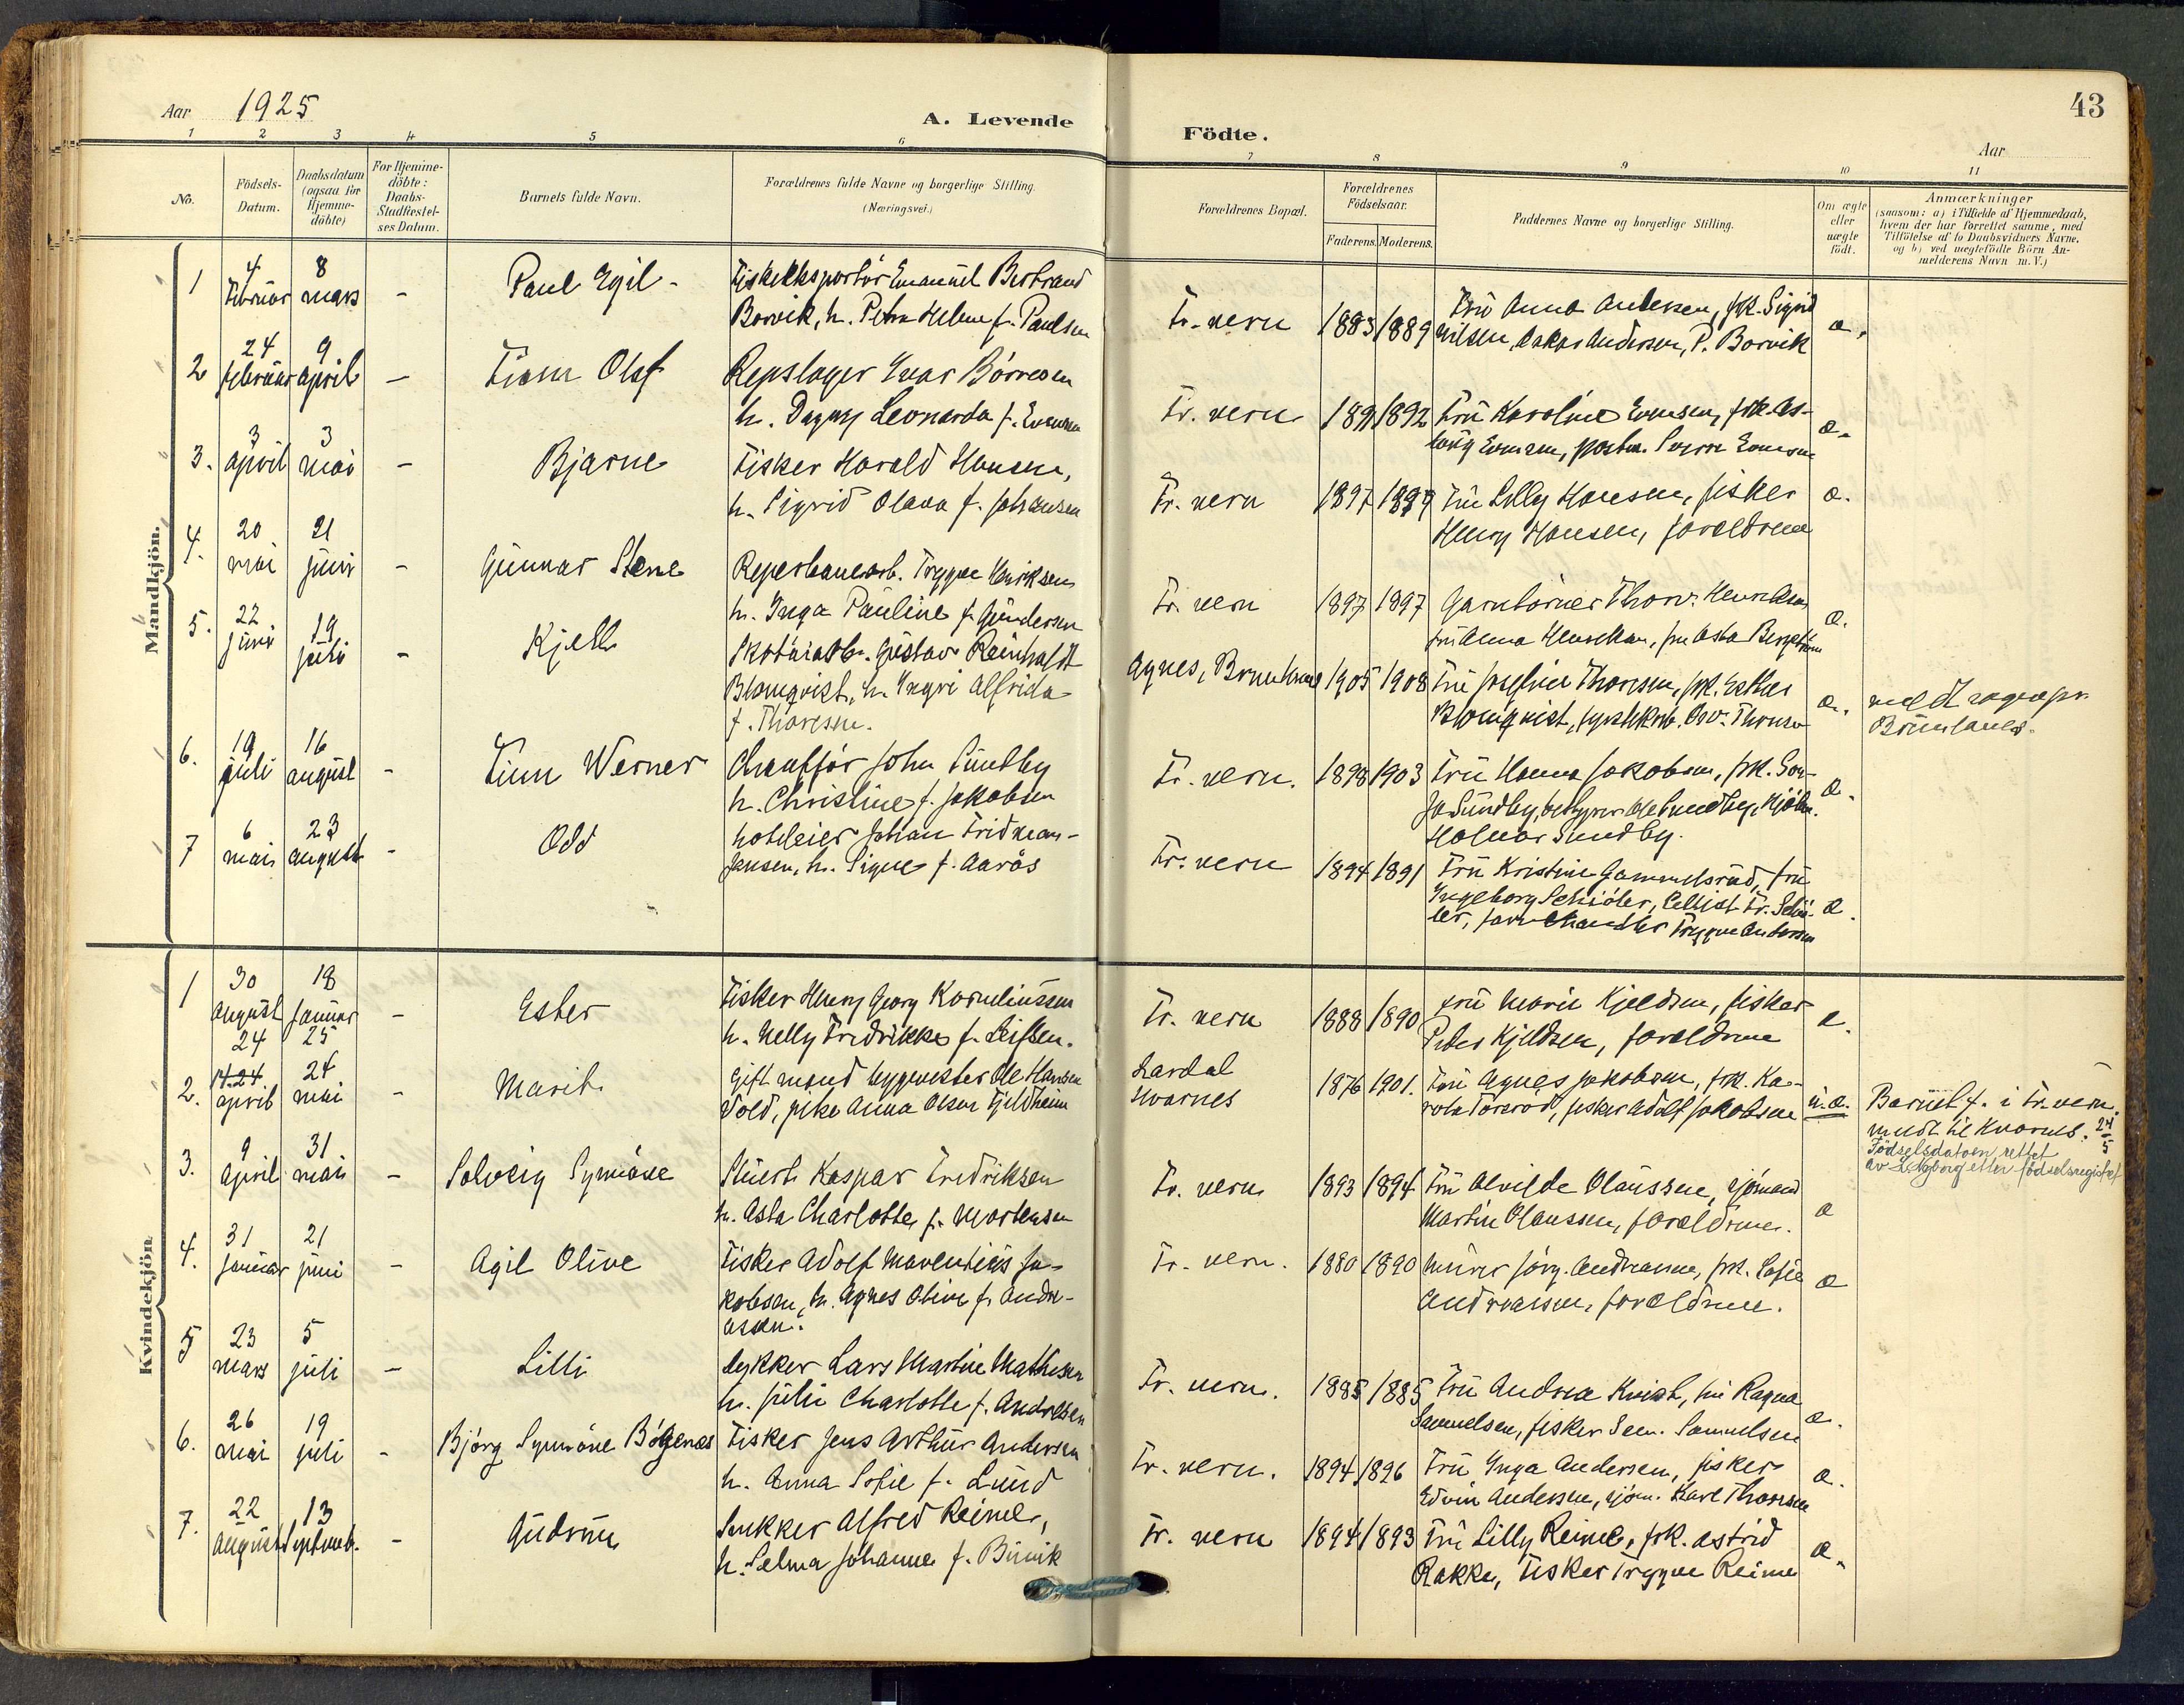 Aar 1925
A. Levende
Födte.
43
Aar
1 2 3 4 5 6 7 8 9 10 11
No.
Födsels-
Datum.
Daabsdatum
(ogsaa for
Hjemme-
döbte)
For Hjemme-
döbte:
Daabs-
Stadfæstel-
ses Datum.
Barnets fulde Navn.
Forældrenes fulde Navne og borgerlige Stilling.
(Næringsvei.)
Forældrenes Bopæl.
Forældrenes
Födselsaar.
Faderens. Moderens.
Faddernes Navne og borgerlige Stilling.
Om ægte
eller
uægte
født.
Anmærkninger
(saasom: a) i Tilfælde af Hjemmedaab,
hvem der har forrettet samme, med
Tilföielse af to Daabsvidners Navne.
og b) ved uægtefödte Börn An-
melderens Navn m. V.)
Mandkjön.
1 4 Februar 8 mars - Paul Egil -
Fiskeeksportör Emanuel Bertrand
Borvik, h. Petra Helene f. Paulsen
Fr. vern 1883 1889
Fru Anna Andersen, frk. Sigrid
Nilsen, Oskar Andersen, P. Borvik
æ.
2 24 februar 9 april - Finn Olaf
Repslager Ivar Börresen
h. Dagny Leonarda f. Evensen
Fr. vern 1891 1892
Fru Karoline Evensen, frk. As-
borg Evensen, Sverre Evensen
æ.
3. 3 april 3 mai - Bjarne
Fisker Harald Hansen,
h. Sigrid Olava f. Johansen
Fr. vern 1897 1899
Fru Lilly Hansen, fisker
Henry Hansen, foreldrene
æ.
4. 20 mai 21 juni - Gunnar Stene
Reperbanearb. Trygve Henriksen
h. Inga Pauline f. Gundersen
Fr. vern 1897 1897
Thorv. Henriksen
fru Anna Henriksen, fru Asta
æ.
5. 22 juni 19 juli - Kjell
Gustav Reinholdt
Blomqvist, h. Yngvi Alfrida
f. Thoresen.
Agnes, Brunlanes 1905 1908
Fru Josefine Thoresen, frk. Esther
Blomqvist, Osv. Thoresen
æ.
Brunlanes.
6. 19 juli 16 august - Finn Werner
Chaufför John Sundby
h. Christine f. Jakobsen
Fr. vern. 1898 1903
Fru Hanna Jakobsen, frk. Son-
ja Sundby, bestyrer Ole Sundby, kjöbm.
Halvor Sundby.
æ.
7 6 mai 23 august - Odd
hoteleier Johan Fridman-
Jensen, h. Signe f. Aarös
Fr. vern 1894 1891
Fru Kristine Gammelsrud, fru
Ingeborg Schiöler, Cellist Fr. Schiö-
ler, farvehandler Trygve Andersen
æ.
Kvindekjön
1 30 august 24 18 januar 25 - Ester
Fisker Henry Georg Korneliussen
h. Nelly Fredrikke f. Leifsen.
Fr. vern 1888 1890
Fru Marie Kjeldsen, fisker
Peder Kjeldsen, foreldrene
æ.
2. 14.24. april 24 mai - Marit
Gift mand bygmester Ole Hansen
Vold, pike Anna Olsen Fjeldheim
Lardal
Hvarnes
1876 1901.
Fru Agnes Jakobsen, frk. Ka-
rola Torsröd, fisker Adolf Jakobsen
u.æ.
Barnet f. i Fr.vern.
meldt til Kvarnes. 24/5
Födselsdatoen rettet
av L. Nyborg etter födselsregistret
3. 9 april 31 mai - Solveig Synnöve
Stuert Kaspar Fredriksen
h. Asta Charlotte f. Mortensen
Fr. vern 1893 1894
Fru Alvilde Olaussen, sjömand
Martin Olaussen, foreldrene.
æ
4. 31 januar 21 juni - Agil Olive
Fisker Adolf Maventius Ja-
kobsen, h. Agnes Olive f. Andre-
assen.
Fr. vern. 1880 1890
Murer Jörg. Andreassen, frk. Sofie
Andreassen, foreldrene.
æ
5 23 mars 5 juli - Lilli
Dykker Lars Martin Mathisen
h. Julie Charlotte f. Andresen
Fr. vern. 1885 1885
Fru Andrea Kvist, fru Ragna
Samuelsen, fisker Sem. Samuelsen
æ.
6. 26 mai 19 juli - Björg Synnöve Bögenæs
Fisker Jens Arthur Andersen
h. Anna Sofie f. Lund
Fr. vern. 1894 1896
Fru Inga Andersen, fisker
Edvin Andersen, sjöm. Karl Thoresen
æ.
7. 22 august 13 Septemb. - Gudrun
Snekker Alfred Reime,
h. Selma Johanne f. Bruvik
Fr. vern 1894 1893
Fru Lilly Reime, frk. Astrid
Rakke, Fisker Trygve Reime
æ.